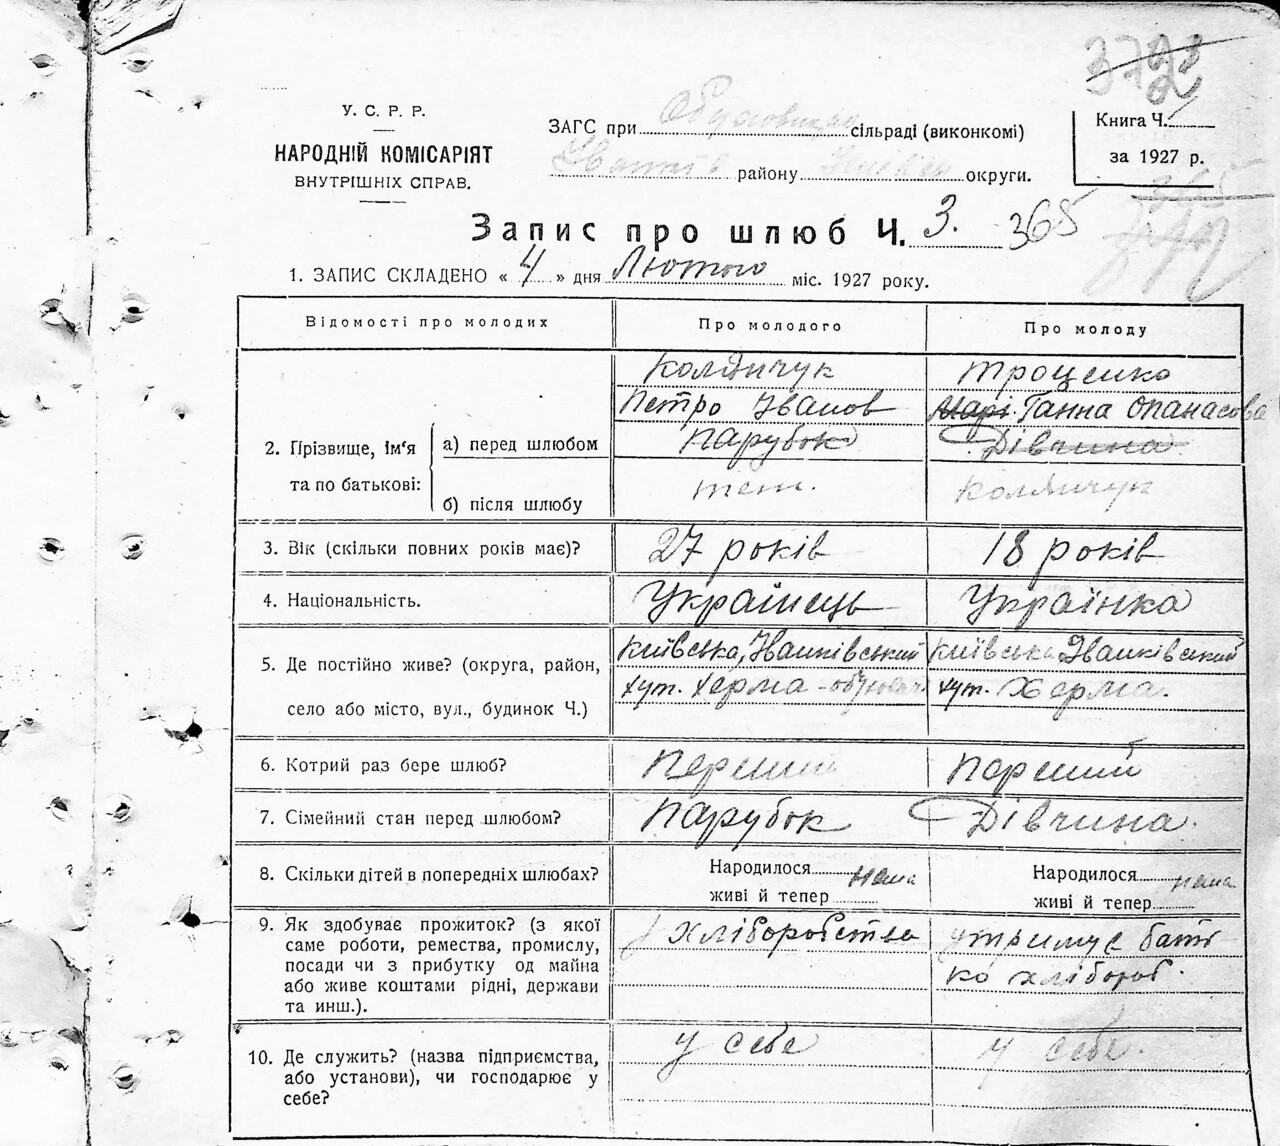 3728
2
У. С. Р. Р.
НАРОДНІЙ КОМІСАРІЯТ
ВНУТРІШНІХ СПРАВ.
ЗАГС при сільраді (виконкомі)
району округи.
Книга Ч.
за 1927 р.
365
Запис про шлюб Ч. 3. 365
1. ЗАПИС СКЛАДЕНО « 4 » дня Лютого міс. 1927 року.
Відомості про молодих Про молодого Про молоду
2. Прізвище, ім'я та по батькові:
а) перед шлюбом
Колянчук Троценко
Петро Іванов Марі Ганна Опанасова
Парубок Дівчина
б) після шлюбу теж. Колянчук
3. Вік (скільки повних років має)? 27 років 18 років
4. Національність. Українець Українка
5. Де постійно живе? (округа, район, Київська, Іванківський Київська Іванківський
село або місто, вул., будинок Ч.) хут. Херма хут. Херма.
6. Котрий раз бере шлюб? Перший Перший
7. Сімейний стан перед шлюбом? Парубок Дівчина.
8. Скільки дітей в попередніх шлюбах? Народилося нема Народилося нема
живі й тепер живі й тепер
9. Як здобуває прожиток? (з якої хліборобство утримує бать
саме роботи, ремества, промислу, ко хлібороб.
посади чи з прибутку од майна
або живе коштами рідні, держави
та инш.).
10. Де служить? (назва підприємства, у себе у себе.
або установи), чи господарює у
себе?